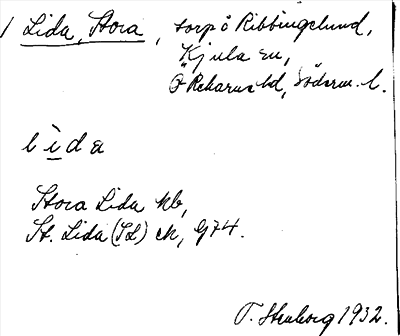 1 Lida, Stora, torp å Ribbingelund,
Kjula sn,
Ö Rekarne hd, Söderm. l.
lìda
Stora Lida kb,
St. Lida (SL) ek, G74.
T. Stenborg 1932.